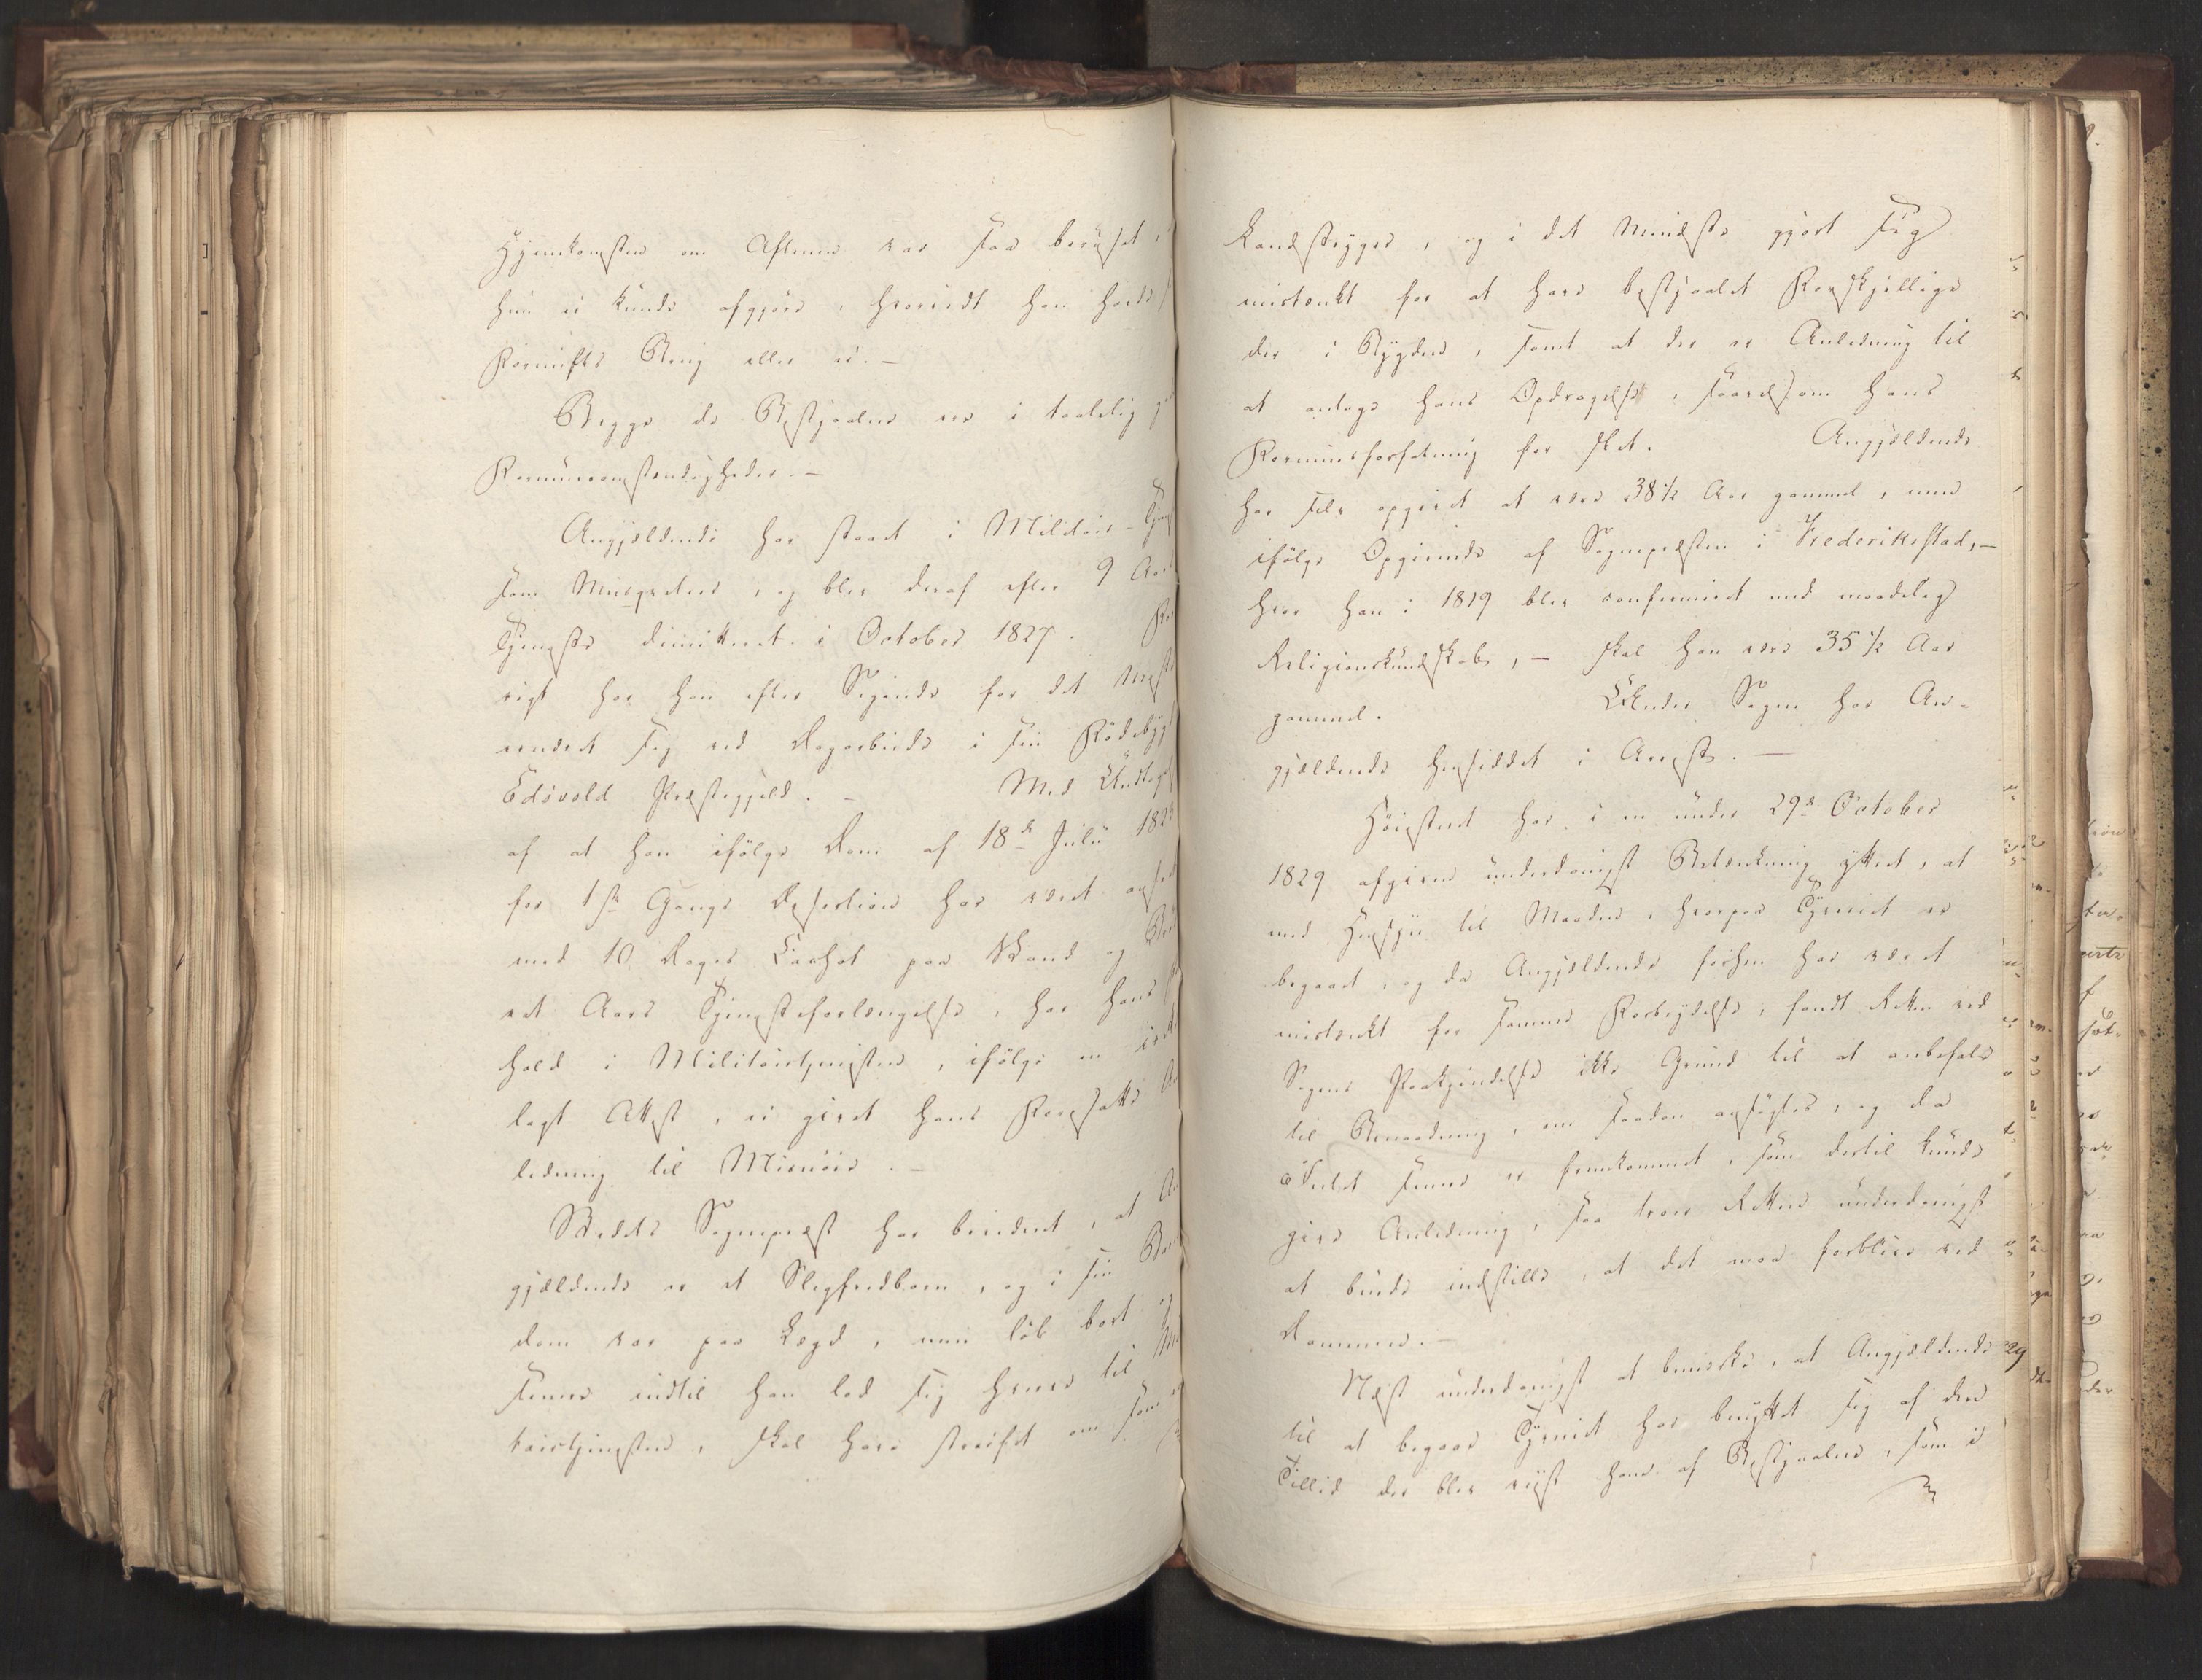 Hjemkomsten om Aftenen var saa beruset,
hun ei kunde afgjøre, hvorvidt han havde
Fornufts Brug eller ei. –
Begge de Bestjaalne ere i taalelig
Formuesomstændigheder. –
Angjældende har staaet i Militair-
som Musqueteer, og blev deraf efter 9
Tjeneste dimitteret i October 1827.
rigt har han efter Sigende for det
næret sig ved Dagarbeide i sin Fødebygd
Edsvold Præstegjeld. – Med Undtagelse
af at han ifølge Dom af 18de Julii
for 1ste Gangs Desertion har været anseet
med 10 Dages Cachot paa Vand og
et Aars Tjenesteforlængelse, har hans
hold i Militairtjenesten, ifølge en
lagt Attest, ei givet hans Foresatte
ledning til Misnøie. –
Stedets Sognepræst har berettet, at
gjældende er et Slegfredbarn, og i sin
dom var paa Lægd, men løb bort
siden indtil han lod sig hverve til
tairtjenesten, skal have streifet om som
Landstryger, og i det Mindste gjort sig
mistænkt for at have bestjaalet Forskjellige
der i Bygden, samt at der er Anledning til
at antage hans Opdragelse, saavelsom hans
Formuesforfatning for slet. Angjældende
har selv opgivet at være 38½ Aar gammel, men
ifølge Opgivende af Sognepræsten i Frederiksstad, –
hvor han i 1819 blev confirmeret med maadelig
Religionskundskab, – skal han være 35½ Aar
gammel. Under Sagen har An-
gjældende hensiddet i Arrest. –
Høiesteret har i en under 29de October
1829 afgiven underdanigst Betænkning yttret, at
med Hensyn til Maaden, hvorpaa Tyveriet er
begaaet, og da Angjældende forhen har været
mistænkt for samme Forbrydelse, fandt Retten ved
Sagens Paakjendelse ikke Grund til at anbefale
til Benaadning, om saadan ansøgtes, og da
Intet siden er fremkommet, som dertil kunde
give Anledning, saa troer Retten underdanigst
at burde indstille, at det maa forblive ved
Dommen. –
Næst underdanigst at bemærke, at Angjældende
til at begaae Tyveriet har benyttet sig af den
Tillid der blev viist ham af Bestjaalne, som i